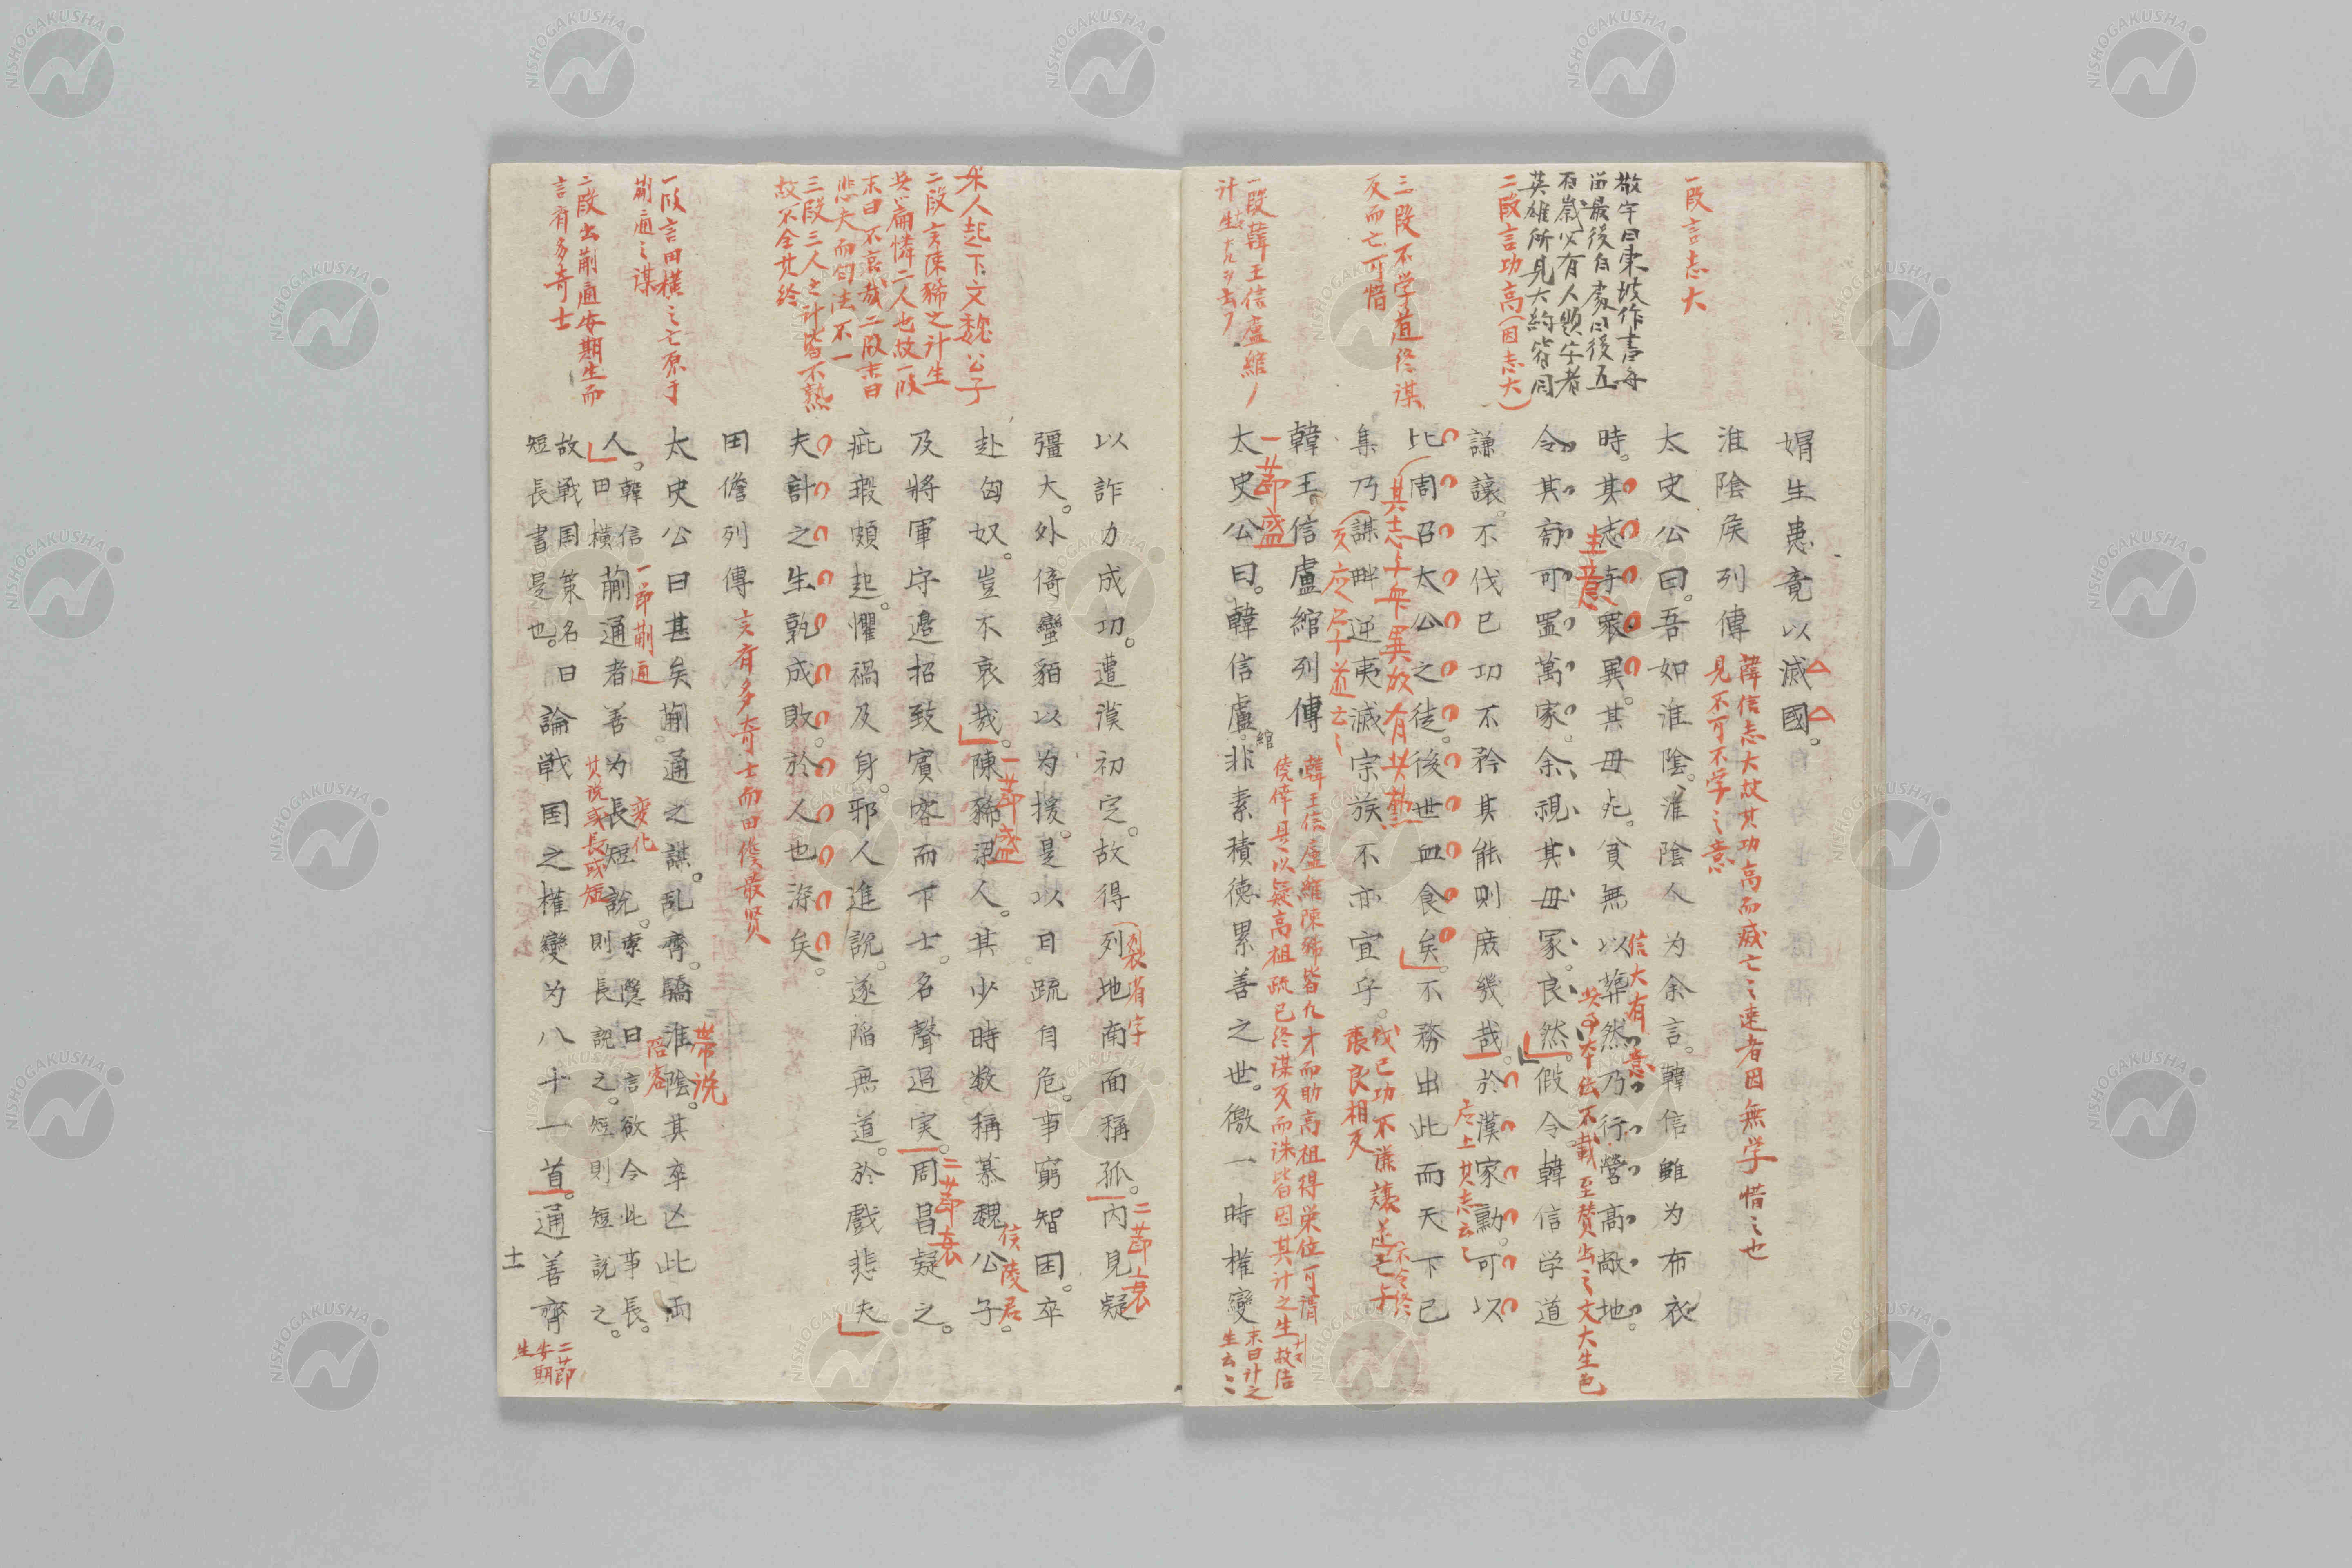 一段言志大
敬宇曰東坡作書每
留最後白處曰後五
百歲必有人題字者
英雄所見大約皆同
二段言功高(因志大)
三段不学道終謀
反而亡可惜
一段韓王信盧綰ノ
媢生患竟以滅國。
淮陰矦列傳
韓信志大故其功高而滅亡之速者因無学惜之也
見不可不学之意
太史公曰。吾如淮陰。淮陰人为余言。韓信雖为布衣
時。其志与衆異。其母死。貧無以葬然乃行營高敞地。
主意
信大有意
令其旁可置萬家。余視其母冢。良然。假令韓信学道
謙讓。不伐已功不矜其能則庻幾哉。於漢家勳。可以
比周召太公之徒。後世血食矣。不務出此而天下已
集乃謀畔逆夷滅宗族不亦宜乎。
韓王信盧綰列傳
太史公曰。韓信盧綰。非素積徳累善之世。徼一時權變
一節盛
以詐力成功。遭漢初定。故得列地南面稱孤。内見疑
裂省字
二節衰
彊大。外倚蠻貊以为援。是以日疏自危。事窮智困。卒
赴匈奴。豈不哀哉。陳豨梁人。其少時數稱慕魏公子。
一節盛
信陵君
及將軍守邉招致賓客而下士。名聲過実。周昌疑之。
二節衰
疵瑕頗起。懼禍及身。邪人進說。遂陥無道。於戲悲夫
夫計之生孰成敗。於人也深矣。
田儋列傳
言有多奇士而田儋最贤
太史公曰甚矣蒯通之謀。乱齊。驕淮陰。其卒亾此両
带说
陪客
人。韓信田橫蒯通者善为長短說。東隠曰言欲令此事長。則長說之。短則短說之。
一節蒯通
变化
其说或長或短
故戰国策名曰
短長書是也。
論戦国之權變为八十一首。通善齊
二節安期生
梁人起下文魏公子
二段言陳豨之计生
末曰不哀哉二段末曰
悲夫而句法不一
三段三人之计皆不熟
故不全其终
一段言田横之亡原于
蒯通之谋
二段出蒯通安期生而
言有多奇士
NISHOGAKUSHA